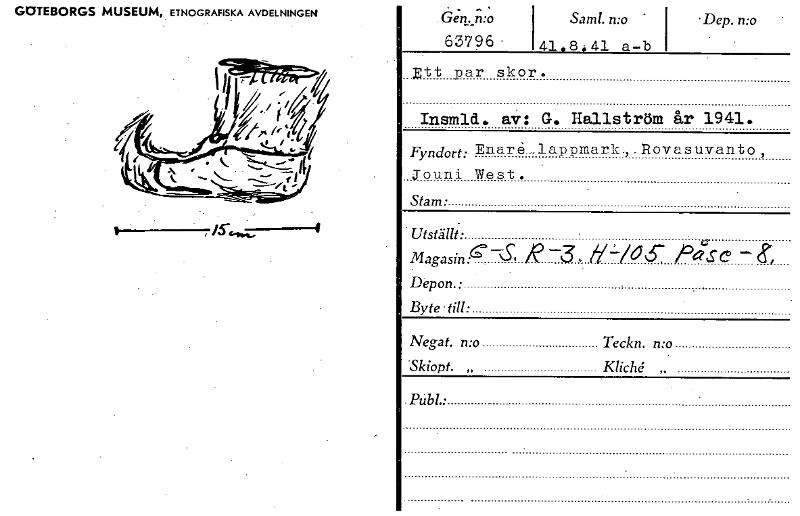 GÖTEBORGS MUSEUM, ETNOGRAFISKA AVDELNINGEN
15 cm
Gen. n:o Saml. n:o Dep. n:o
63796 41.8.41 a-b
Ett par skor.
Insmld. av: G. Hallström år 1941.
Fyndort: Enare lappmark, Rovasuvanto,
Jouni West.
Stam:
Utställt:
Magasin: G-S. R-3. H-105 Påse-8.
Depon.:
Byte till:
Negat. n:o Teckn. n:o
Skiopt. „ Kliché „
Publ.: